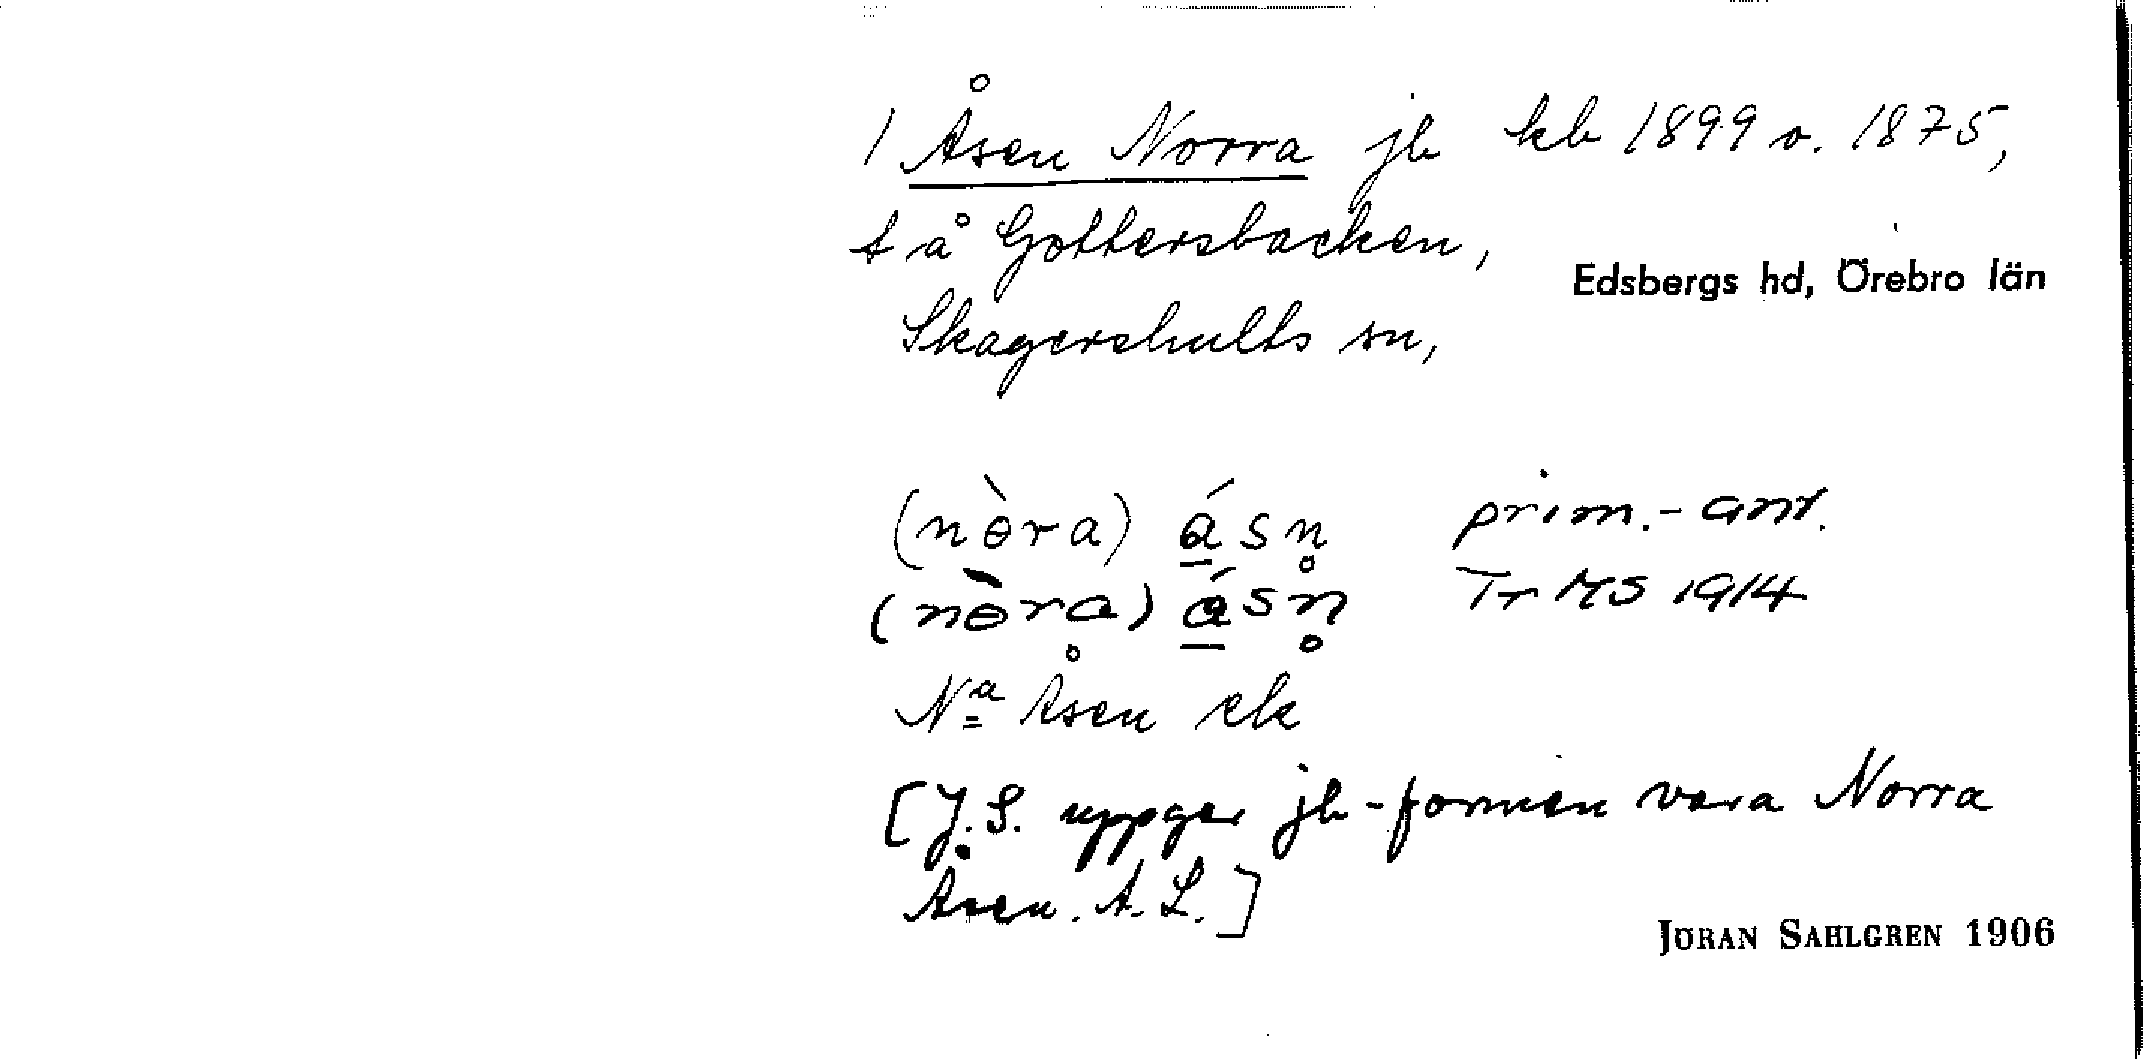 1 Åsen Norra jb kb 1899 o. 1875,
t å Gottersbacken,
Edsbergs hd, Örebro län
Skagershults sn,
(nèra) ásn̥ prim.-ant.
(nèra) ásn̥ Tr MS 1914
Nᵃ Åsen ek
[J.S. uppger jb-formen vara Norra
Åsen. A.L.]
JÖRAN SAHLGREN 1906